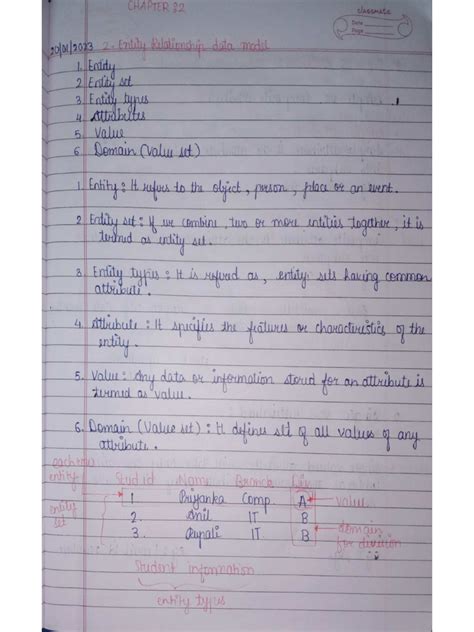 CHAPTER 2
classmate
Date
Page
20/01/2023 2. Entity Relationship data model
1. Entity
2. Entity set
3. Entity types
4. Attributes
5. Value
6. Domain (Value set)
1. Entity : It refers to the object, person, place or an event.
2. Entity set : If we combine, two or more entities together, it is
termed as entity set.
3. Entity types : It is refered as, entity sets having common
attribute.
4. Attribute : It specifies the features or characteristics of the
entity.
5. Value : Any data or information stored for an attribute is
termed as value.
6. Domain (Value set) : It defines set of all values of any
attribute.
each row
entity
Stud id Name Branch Div
1 Priyanka Comp. A value
entity
set
2. Anil IT B
3. Rupali IT B
domain
for division
Student information
entity types